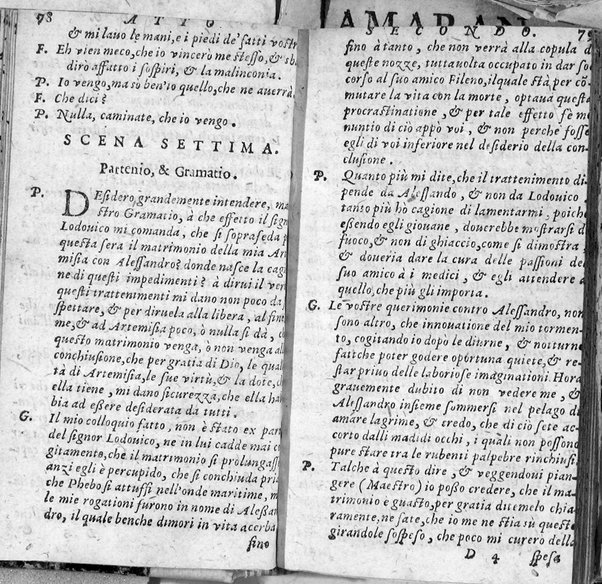 78 ATTO
& mi lavo le mani, e i piedi de' fatti vostri
F. Eh vien meco, che io vincero me stesso, & sban
dirò affatto i sospiri, & la malinconia.
P. Io vengo, ma sò ben'io quello, che ne auerrà
F. Che dici?
P. Nulla, caminate, che io vengo.
SCENA SETTIMA.
Partenio, & Gramatio.
P. DEsidero grandemente intendere, ma
stro Gramatio, à che effetto il signor
Lodouico mi comanda, che si soprasseda per
questa sera il matrimonio della mia Arte
misia con Alessandro? donde nasce la cagio
ne di questi impedimenti? à dirui il vero
questi trattenimenti mi dano non poco da so
spettare, & per diruela alla libera, al fine
me, & ad Artemisia poco, ò nulla si dà, che
questo matrimonio venga, ò non venga alla
conchiusione, che per gratia di Dio, le quali
tà di Artemisia, le sue virtù, & la dote, che
ella tiene, mi dano sicurezza, che ella hab
bia ad essere desiderata da tutti.
G. Il mio colloquio fatto, non è stato ex parte
del signor Lodouico, ne in lui cadde mai co
gitamento, che il matrimonio si prolungasse
anzi egli è percupido, che si conchiuda pria
che Phebo si attuffi nell'onde maritime, ma
le mie rogationi furono in nome di Alessan
dro, il quale benche dimori in vita acerba
fino
AMARAN
SECONDO. 79
fino à tanto, che non verrà alla copula di
queste nozze, tuttauolta occupato in dar soc
corso al suo amico Fileno, il quale stà per cõ
mutare la vita con la morte, optaua questa
procrastinatione, & per tale effetto fè me
nuntio di ciò appò voi, & non perche fosse
egli di voi inferiore nel desiderio della con
clusione.
P. Quanto più mi dite, che il trattenimento di
pende da Alessando, & non da Lodouico,
tanto più hò cagione di lamentarmi, poiche
essendo egli giouane, douerebbe mostrarsi di
fuoco, & non di ghiaccio, come si dimostra,
& doueria dare la cura delle passioni del
suo amico à i medici, & egli attendere a
quello, che più gli importa.
G. Le vostre querimonie contro Alessandro, non
sono altro, che innouatione del mio tormen
to, cogitando io dopò le diurne, & notturne
fatiche poter godere oportuna quiete, & re
star priuo delle laboriose imaginationi. Hora
grauemente dubito di non vedere me, &
Alessandro insieme sommersi nel pelago di
amare lagrime, & credo, che di ciò sete ac
corto dalli madidi occhi, i quali non possono
pure stare tra le rubenti palpebre rinchiusi.
P. Talche à questo dire, & veggendoui pian
gere (Maestro) io posso credere, che il ma
trimonio è guasto, per gratia ditemelo chia
ramente, ne fate, che io me ne stia sù queste
girandole sospeso, che poco mi curerò della
D 4 spesa